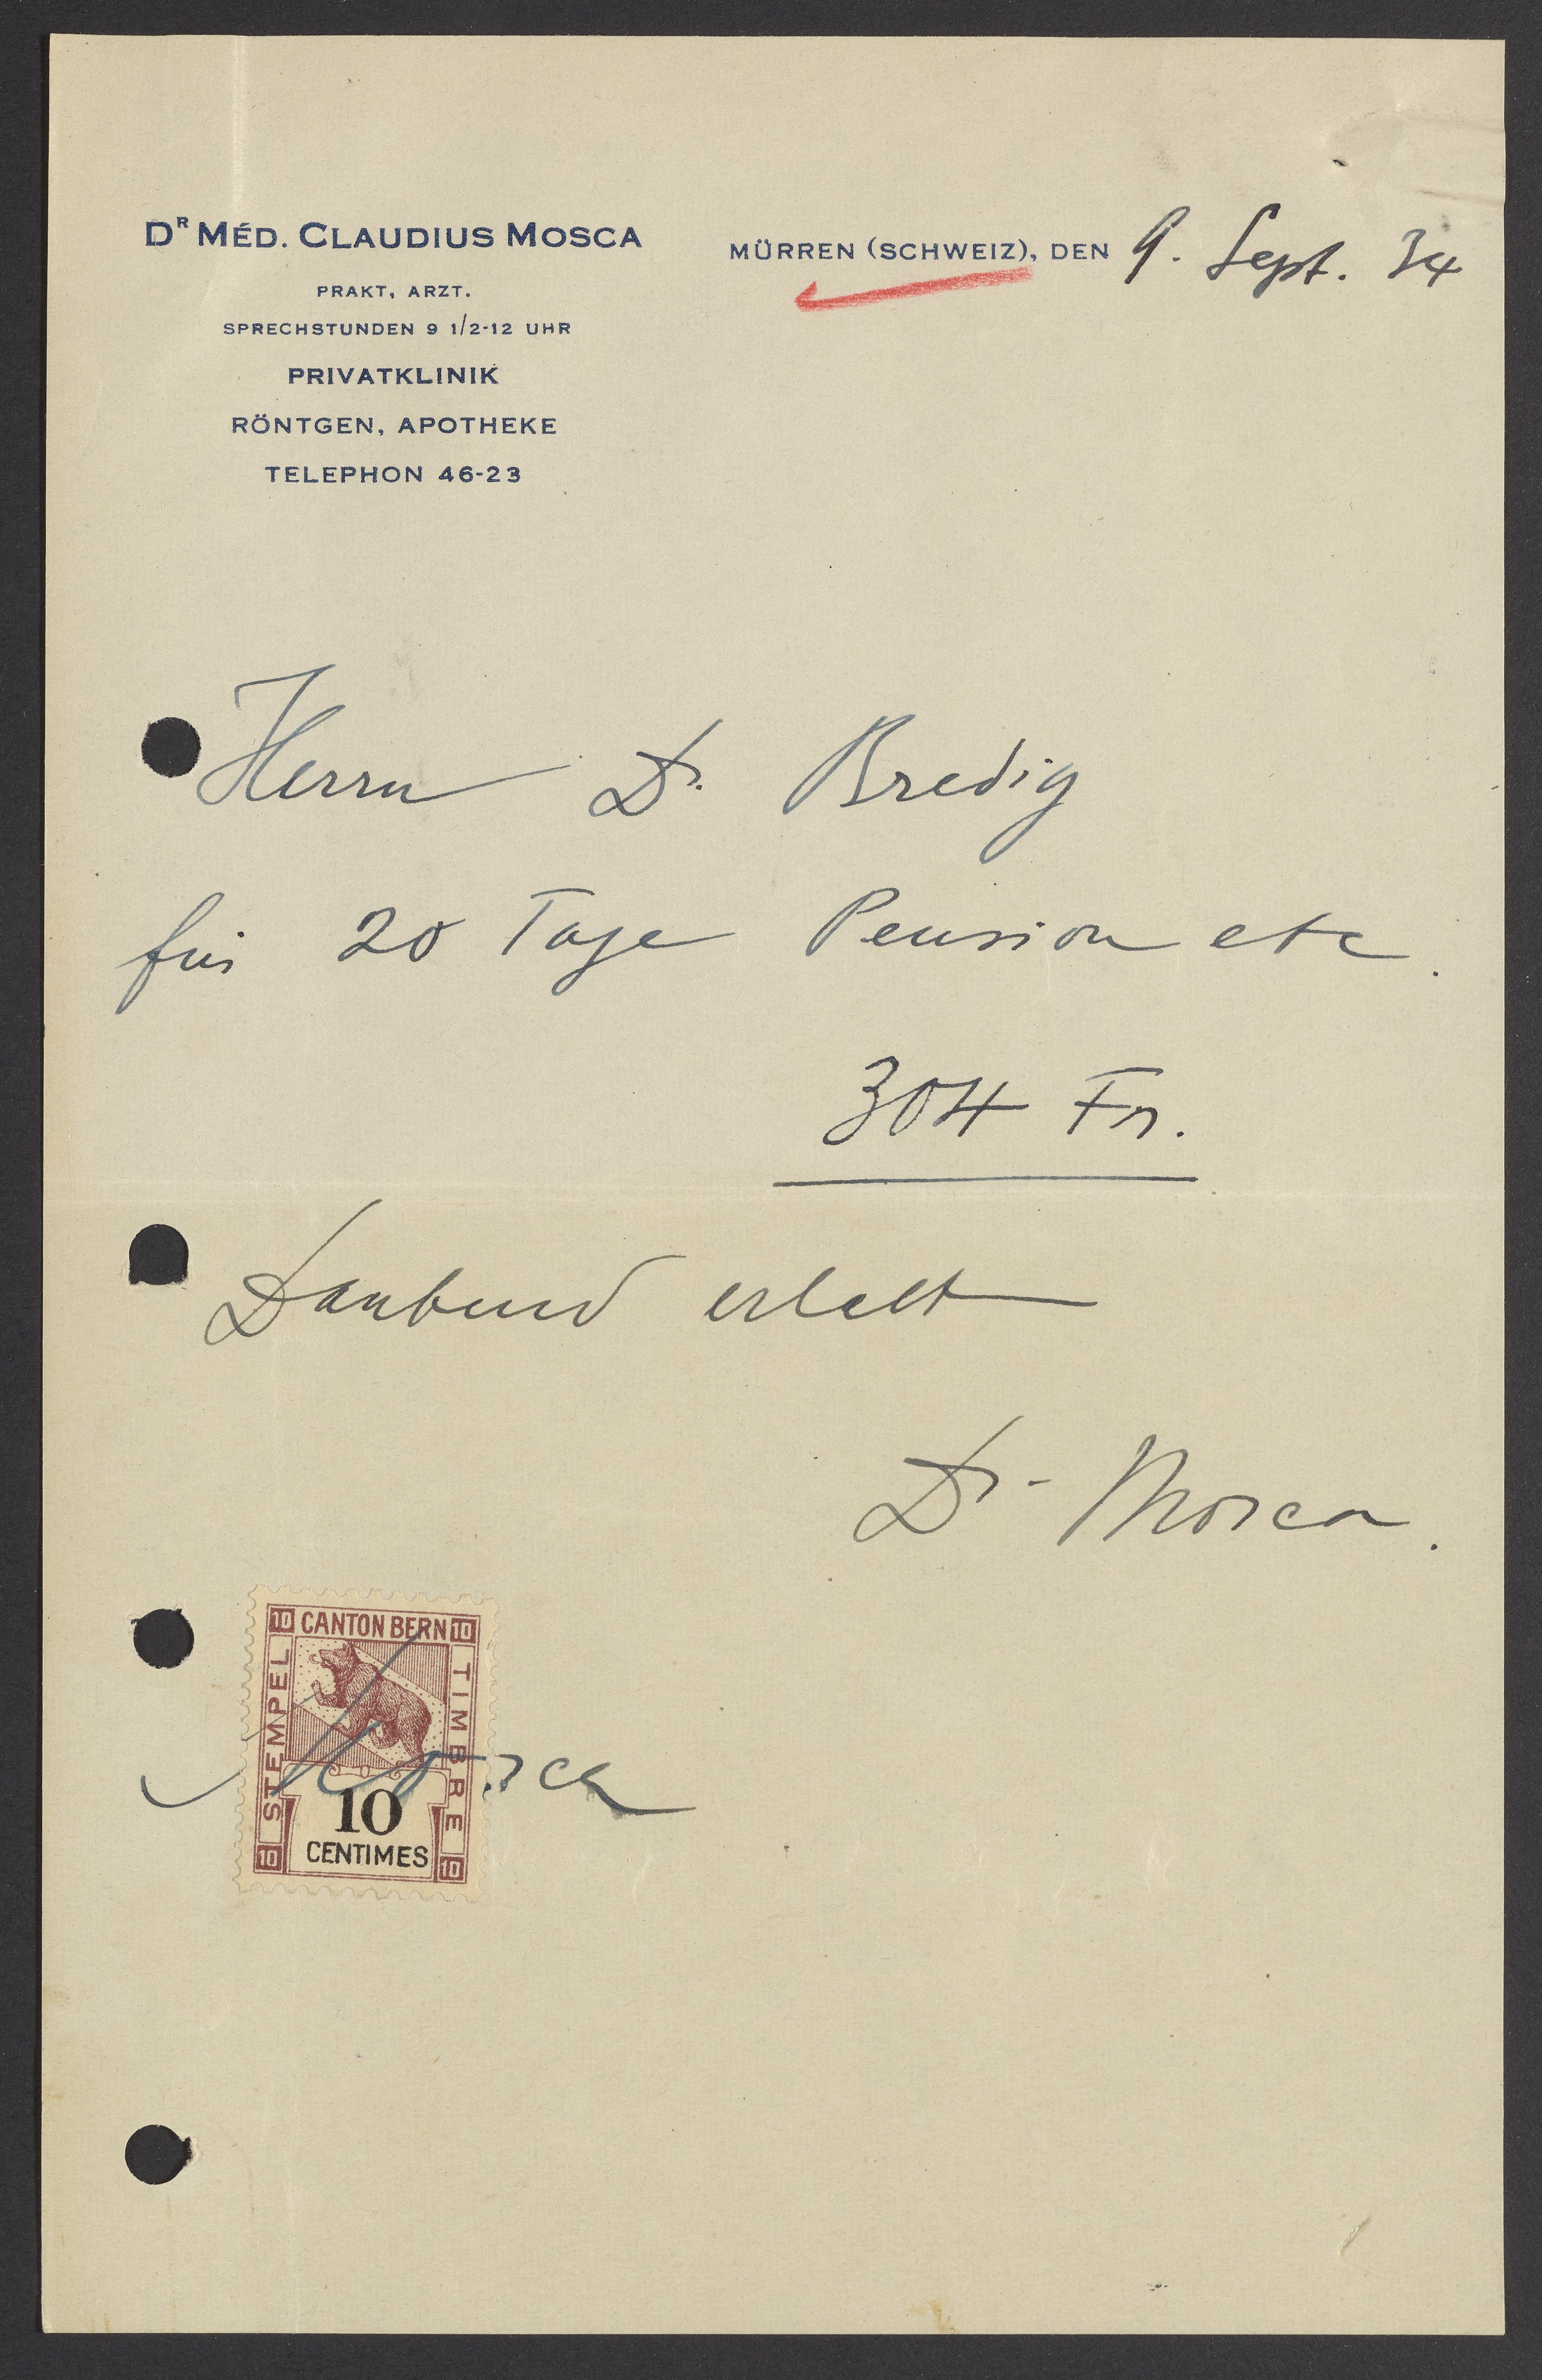 DR MÉD. CLAUDIUS MOSCA
PRAKT, ARZT.
SPRECHSTUNDEN 9 1/2-12 UHR
PRIVATKLINIK
RÖNTGEN, APOTHEKE
TELEPHON 46-23
MÜRREN (SCHWEIZ), DEN 9. Sept. 34
Herrn Dr. Bredig
für 20 Tage Pension etc.
304 Fr.
Dankend erhalt
Dr. Mosca.
10 CANTON BERN 10
STEMPEL
TIMBRE
Mosca
10
CENTIMES
10 10